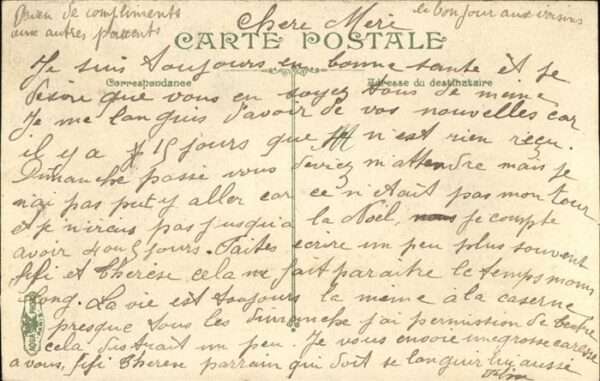 Bien de compliments
aux autres parents
le bonjour aux voisins
Chere Meri
CARTE POSTALE
Je suis toujours en bonne sante et je
Correspondance
Adresse du destinataire
desire que vous en soyez tous de meme
Je me languis d'avoir de vos nouvelles car
il y a 15 jours que n'est rien reçu.
Dimanche passé vous devriez m'attendre mais je
n'ai pas put y aller car ce n'était pas mon tour
et je n'irais pas jusqu'a la Noël, je compte
avoir 4 ou 5 jours. Faites ecrire un peu plus souvent
fifi et Therèse cela me fait paraitre le temps moins
long. La vie est toujours la meme a la caserne
presque tous les dimanche j'ai permission de
cela distrait un peu. Je vous encore une grosse
a vous, fifi Theren parrain qui doit se languir lui aussi